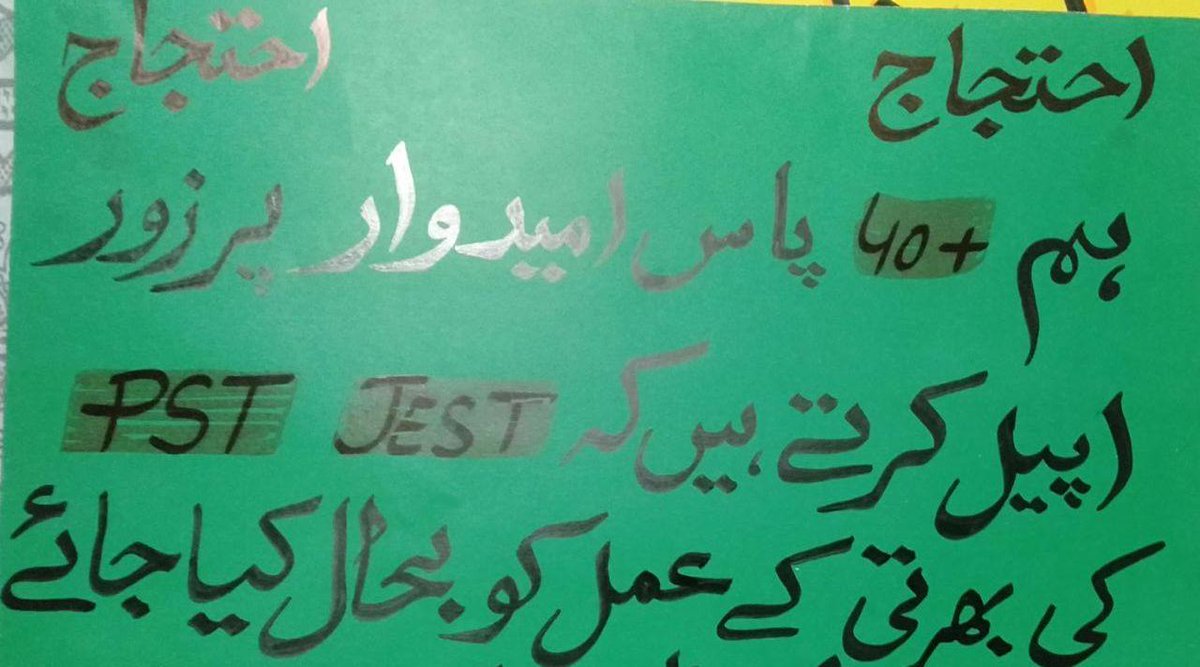 احتجاج احتجاج
ہم 40+ پاس امیدوار پر زور
اپیل کرتے ہیں کہ JEST PST
کی بھرتی کے عمل کو بحال کیا جائے